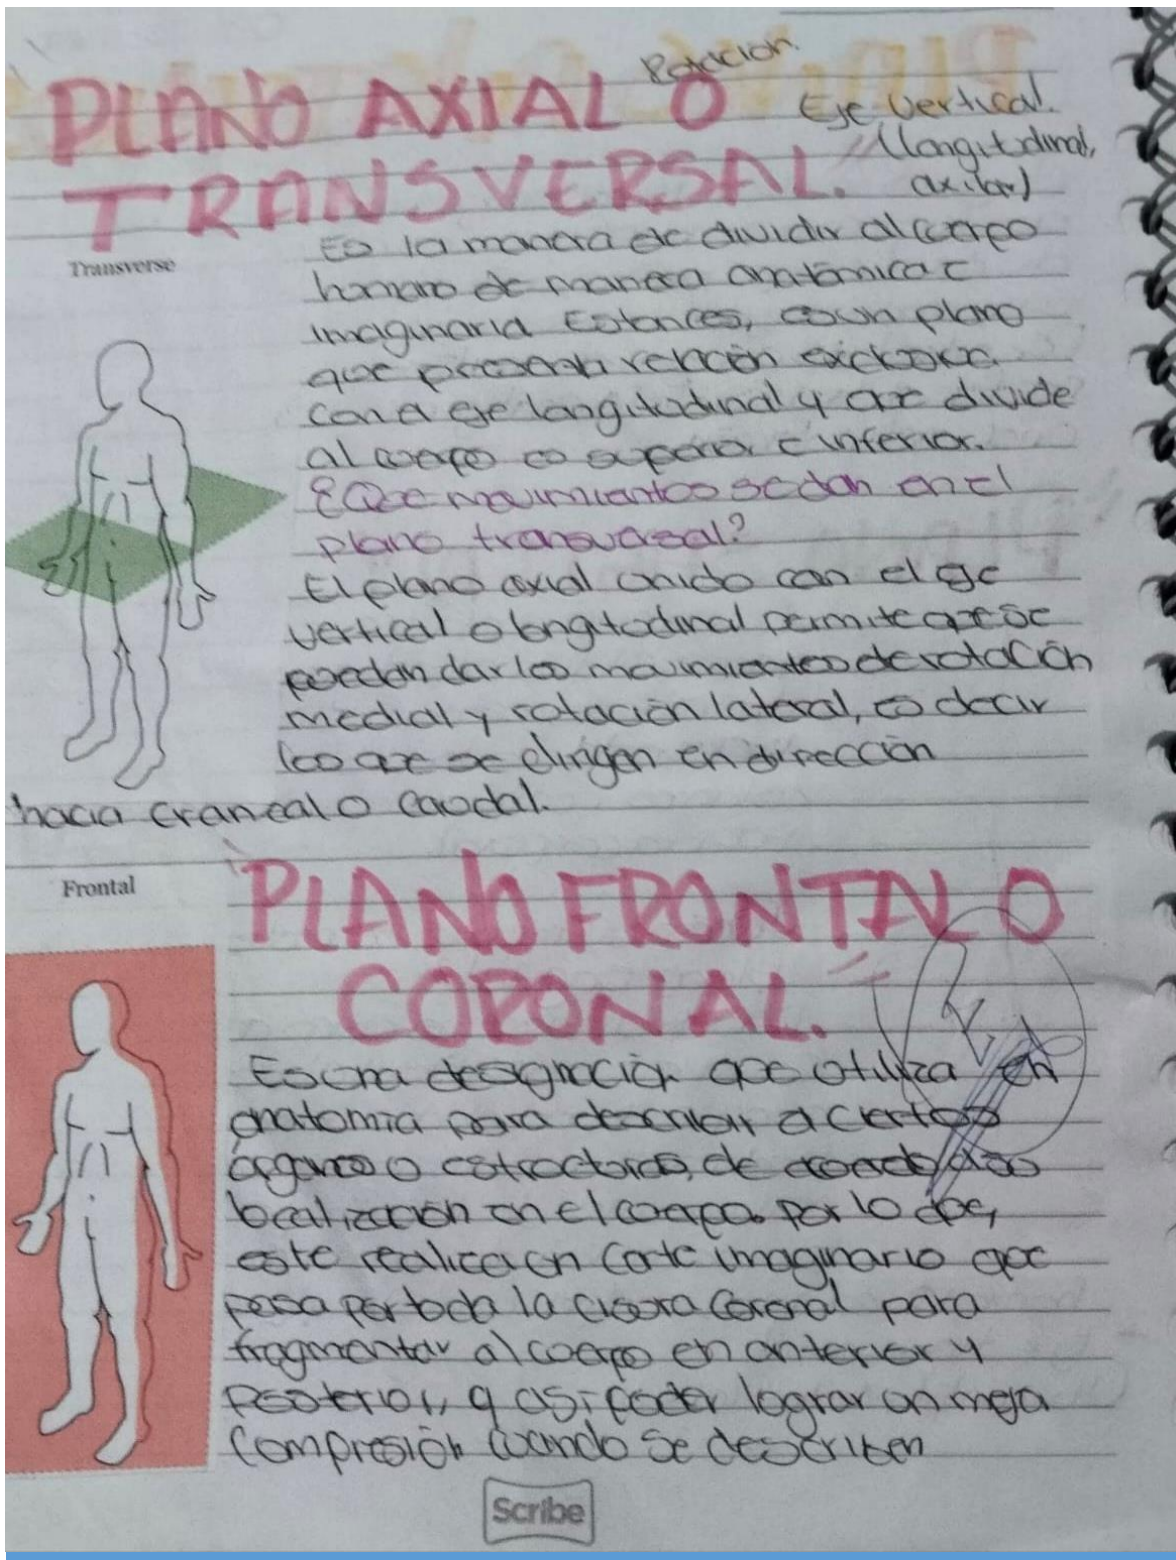 Rotación.
PLANO AXIAL O
Eje Vertical.
(longitudinal,
TRANSVERSAL.
axilar)
Transverse
Es la manera de dividir al cuerpo
humano de manera anatómica e
imaginaria Entonces, es un plano
que presenta relación exclusiva
con el eje longitudinal y que divide
al cuerpo en superior e inferior.
¿Que movimientos se dan en el
plano transversal?
El plano axial unido con el eje
vertical o longitudinal permite que se
puedan dar los movimientos de rotación
medial y rotación lateral, es decir
los que se dirigen en dirección
hacia craneal o caudal.
Frontal
PLANO FRONTAL O
CORONAL.
Es una designación que utiliza en
anatomía para describir a ciertos
órganos o estructuras, de acuerdo a su
localización en el cuerpo. Por lo que,
este realiza un corte imaginario que
pasa por toda la cisura coronal para
fragmentar al cuerpo en anterior y
posterior, y así poder lograr un mejor
compresión cuando se describen
Scribe